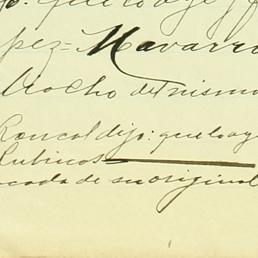 que lo oye y f
pez = Navarro
Mocho del mismo
Roncal dijo: que lo oye
Rubricos
cada de su original